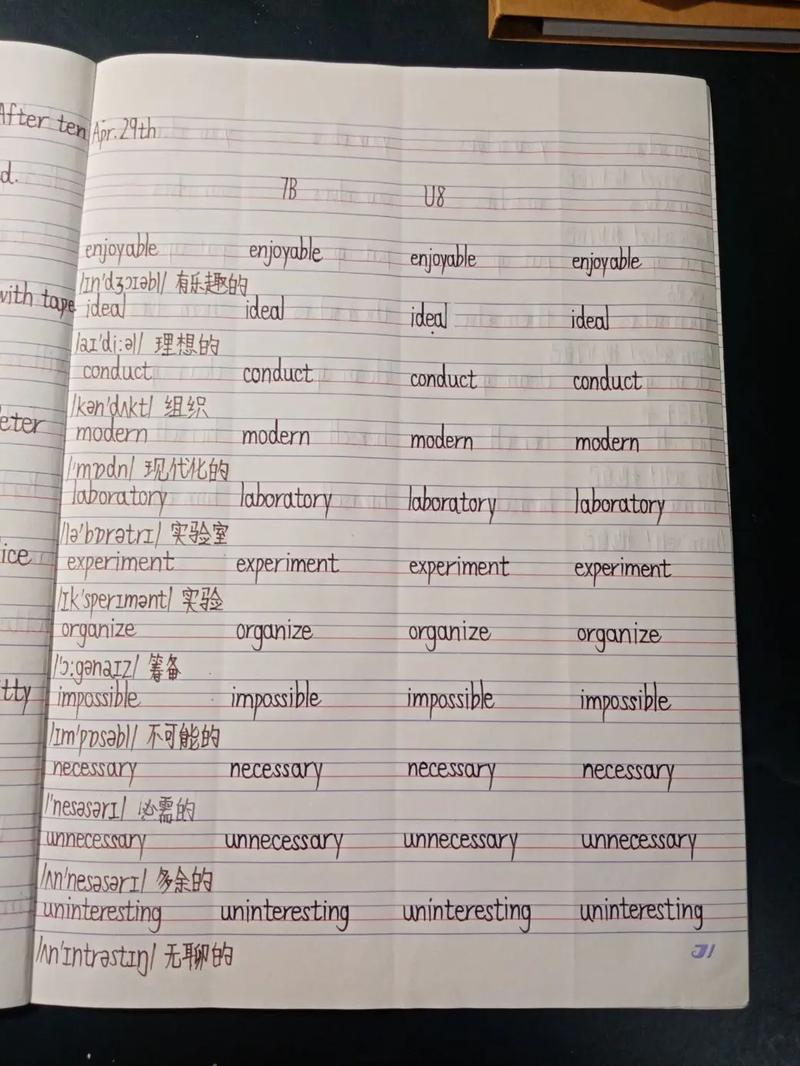 After ten
d.
with tape
eter
ice
tty
Apr. 29th
7B U8
enjoyable enjoyable enjoyable enjoyable
/ɪn'dʒɔɪəbl/ 有乐趣的
ideal ideal ideal ideal
/aɪ'di:əl/ 理想的
conduct conduct conduct conduct
/kən'dʌkt/ 组织
modern modern modern modern
/'mɒdn/ 现代化的
laboratory laboratory laboratory laboratory
/lə'bɒrətrɪ/ 实验室
experiment experiment experiment experiment
/ɪk'sperɪmənt/ 实验
organize organize organize organize
/'ɔ:gənaɪz/ 筹备
impossible impossible impossible impossible
/ɪm'pɒsəbl/ 不可能的
necessary necessary necessary necessary
/'nesəsərɪ/ 必需的
unnecessary unnecessary unnecessary unnecessary
/ʌn'nesəsərɪ/ 多余的
uninteresting uninteresting uninteresting uninteresting
/ʌn'ɪntrəstɪŋ/ 无聊的